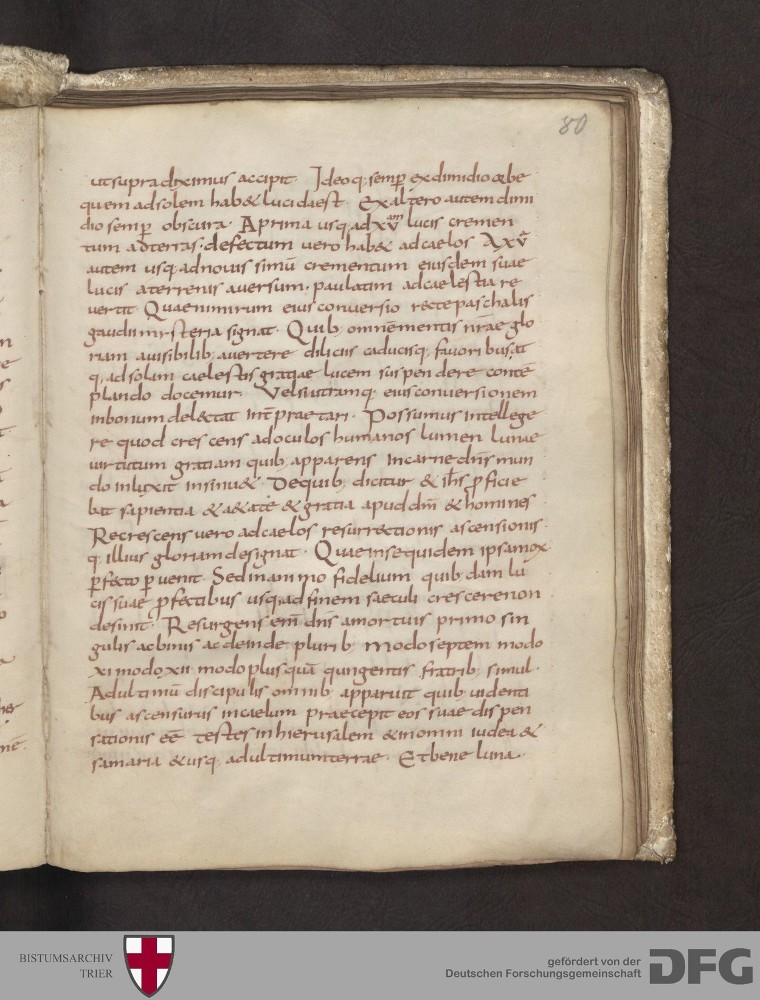 80
ut supra diximus accipit. Ideoq; semp ex dimidio orbe
quem ad solem hab& lucida est. Ex altero autem dimi
dio semp obscura. A prima usq; ad xv am lucis cremen
tum ad terras. defectum vero hab& ad caelos A xv
autem usq; ad novissimū crementum eiusdem suae
lucis a terrenis aversum. paulatim ad caelestia re
vertit. Quae nimirum eius conversio recte paschalis
gaudii mysteria signat. Quib; omnē mentis nrae glo
riam a visibilib; avertere diliciis caducisq; favoribus. at
q; ad solam caelestis gratiae lucem suspendere contē
plando docemur. Vel si utramq; eius conversionem
in bonum delectat intpraetari. Possumus intellege
re quod crescens ad oculos humanos lumen lunae
virtutum gratiam quib; apparens in carne dns mun
do inluxit insinu&. De quib; dicitur & ihs pficie
bat sapientia & a&ate & gratia apud dm & homines
Recrescens vero ad caelos resurrectionis ascensionis
q; illius gloriam designat. Quae in se quidem ipsa mox
pfecto pvenit. Sed in animo fidelium quib;dam lu
cis suae pfectibus usq; ad finem saeculi crescere non
desinit. Resurgens em dns a mortuis primo sin
gulis ac binis ac deinde plurib; modo septem modo
xi modo xii modo plus quā quingentis fratrib; simul.
Ad ultimū discipulis omnib; apparuit quib; videnti
bus ascensurus in caelum praecepit eos suae dispen
sationis eē testes in hierusalem & in omni iudea &
samaria & usq; ad ultimum terrae. Et bene luna
BISTUMSARCHIV
TRIER
gefördert von der
Deutschen Forschungsgemeinschaft
DFG